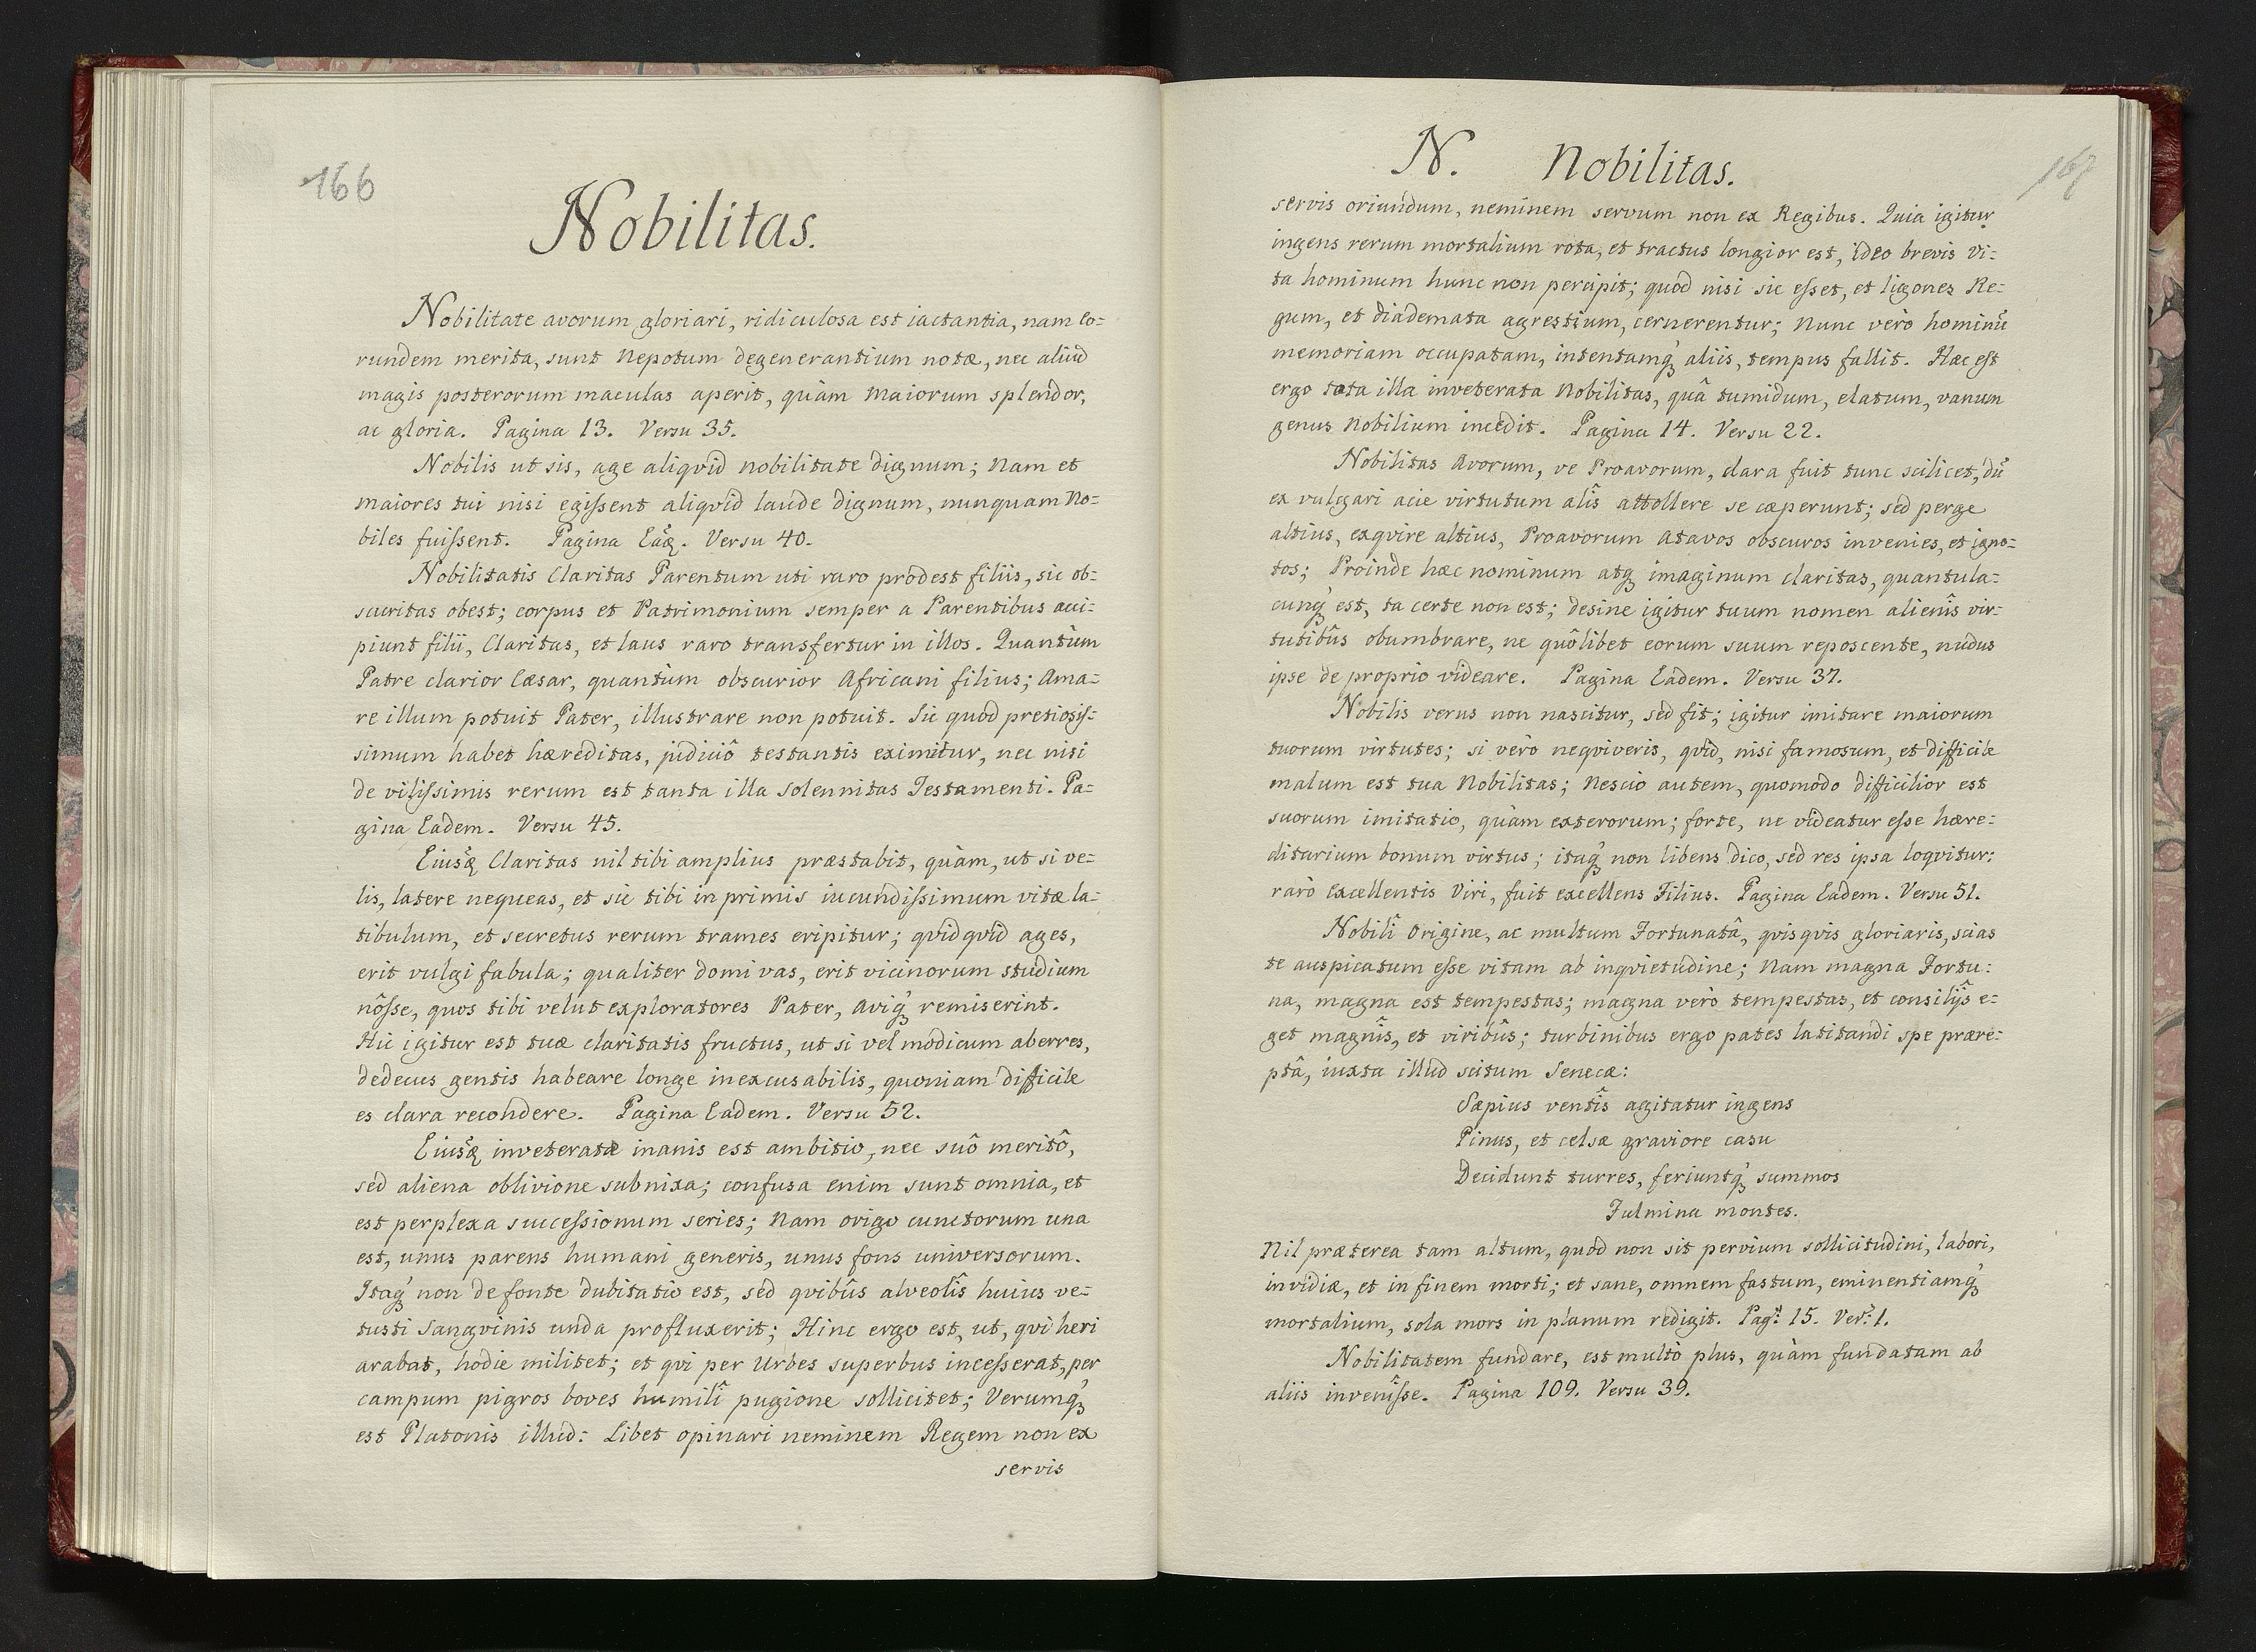 166
Nobilitas.
Nobilitate avorum gloriari, ridiculosa est iactantia, nam eo-
rundem merita, sunt Nepotum degenerantium notæ, nec aliud
magis posterorum maculas aperit, quàm Maiorum splendor,
ac gloria. Pagina 13. Versu 35.
Nobilis ut sis, age aliqvid nobilitate dignum; Nam et
maiores tui nisi egissent aliqvid laude dignum, nunquam No-
biles fuissent. Pagina Eâq. Versu 40.
Nobilitatis Claritas Parentum uti raro prodest filiis, sic ob-
scuritas obest; corpus et Patrimonium semper a Parentibus acci-
piunt filii, Claritas, et laus raro transfertur in illos. Quantùm
Patre clarior Cæsar, quantùm obscurior Africani filius; Ama-
re illum potuit Pater, illustrare non potuit. Sic quod pretiosis-
simum habet hæreditas, judiciô testantis eximitur, nec nisi
de vilissimis rerum est tanta illa solennitas Testamenti. Pa-
gina Eadem. Versu 45.
Eiusq Claritas nil tibi amplius præstabit, quàm, ut si ve-
lis, latere nequeas, et sic tibi in primis iucundissimum vitæ la-
tibulum, et secretus rerum trames eripitur; qvidqvid ages,
erit vulgi fabula; qualiter domi vas, erit vicinorum studium
nôsse, quos tibi velut exploratores Pater, Aviq́ remiserint.
Hic igitur est tuæ claritatis fructus, ut si vel modicum aberres,
dedecus gentis habeare longe inexcusabilis, quoniam difficile
es clara recondere. Pagina Eadem. Versu 52.
Eiusq inveteratæ inanis est ambitio, nec suô meritô,
sed aliena oblivione subnixa; confusa enim sunt omnia, et
est perplexa successionum series; Nam origo cunctorum una
est, unus parens humani generis, unus fons universorum.
Itaq́ non de fonte dubitatio est, sed qvibûs alveolîs huius ve-
tusti Sangvinis unda profluxerit; Hinc ergo est, ut, qvi heri
arabat, hodie militet; et qvi per Urbes superbus incesserat, per
campum pigros boves humilî pugione sollicitet; Verumq́
est Platonis illud: Libet opinari neminem Regem non ex
servis
N. Nobilitas.
167
servis oriundum, neminem servum non ex Regibus. Quia igitur
ingens rerum mortalium rota, et tractus longior est, ideo brevis vi-
ta hominum hunc non percipit; quod nisi sic esset, et ligones Re-
gum, et diademata agrestium, cernerentur; Nunc verò hominū
memoriam occupatam, intentamq́ aliis, tempus fallit. Hæc est
ergo tota illa inveterata Nobilitas, quâ tumidum, elatum, vanum
genus Nobilium incedit. Pagina 14. Versu 22.
Nobilitas Avorum, ve Proavorum, clara fuit tunc scilicet, dū
ex vulgari acie virtutum alîs attollere se cæperunt; sed perge
altius, exqvire altius, Proavorum Atavos obscuros invenies, et igno-
tos; Proinde hæc nominum atq imaginum claritas, quantula-
cunq́ est, ta certe non est; desine igitur tuum nomen alienîs vir-
tutibûs obumbrare, ne quôlibet eorum suum reposcente, nudus
ipse de proprio videare. Pagina Eadem. Versu 37.
Nobilis verus non nascitur, sed fit; igitur imitare maiorum
tuorum virtutes; si verò neqviveris, qvid, nisi famosum, et difficile
malum est tua Nobilitas; Nescio autem, quomodo difficilior est
suorum imitatio, quàm exterorum; forte, ne videatur esse hære-
ditarium bonum virtus; itaq́ non libens dico, sed res ipsa loqvitur:
rarò Excellentis Viri, fuit excellens Filius. Pagina Eadem. Versu 51.
Nobilî Origine, ac multum Fortunatâ, qvisqvis gloriaris, scias
te auspicatum esse vitam ab inqvietudine; Nam magna Fortu-
na, magna est tempestas; magna verò tempestas, et consilijs e-
get magnîs, et viribûs; turbinibus ergo pates latitandi spe prære-
ptâ, iuxta illud scitum Senecæ:
Sæpius ventîs agitatur ingens
Pinus, et celsæ graviore casu
Decidunt turres, feriuntq́ summos
Fulmina montes.
Nil præterea tam altum, quod non sit pervium sollicitudini, labori,
invidiæ, et in finem morti; et sane, omnem fastum, eminentiamq́
mortalium, sola mors in planum redigit. Pagª 15. Versº 1.
Nobilitatem fundare, est multò plus, quàm fundatam ab
aliis invenîsse. Pagina 109. Versu 39.